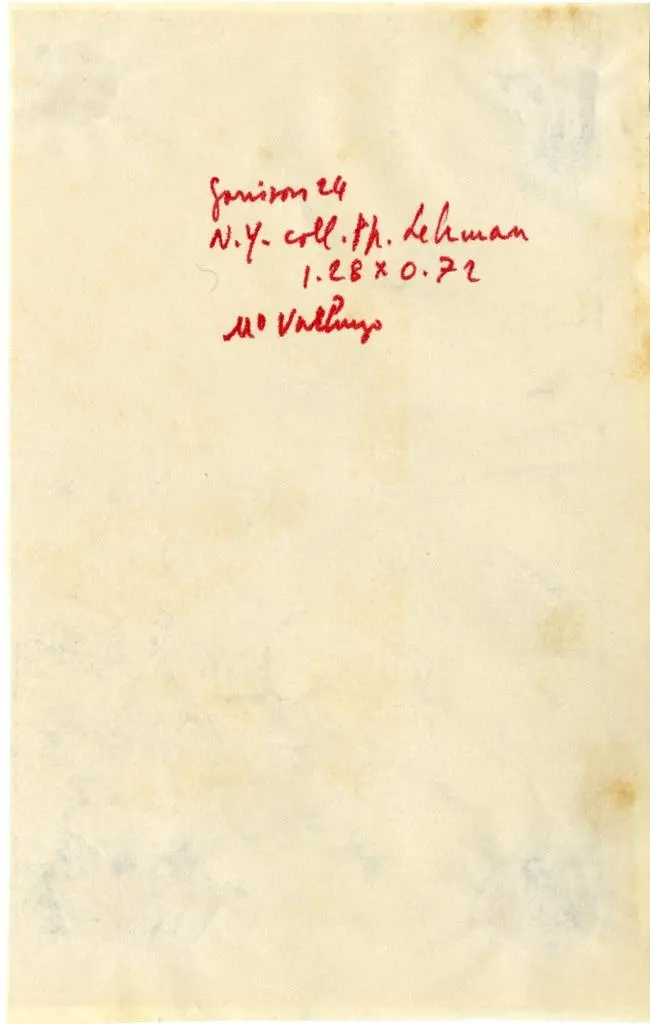 Garrison 24
N.Y. coll. Ph. Lehman
1.28 x 0.72
Mº